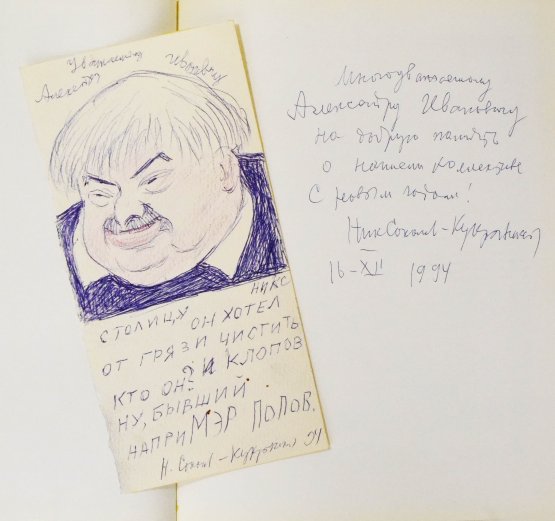 Уважаемому
Александру Ивановичу
НИКС
СТОЛИЦУ ОН ХОТЕЛ
ОТ ГРЯЗИ ЧИСТИТЬ
И КЛОПОВ
КТО ОН?
НУ, БЫВШИЙ
НАПРИМЭР ПОПОВ.
Н. Соколов-Кукрыникс 94
Многоуважаемому
Александру Ивановичу
на добрую память
о нашем коллективе
С Новым годом!
Ник Соколов-Кукрыникс
16-XII 1994